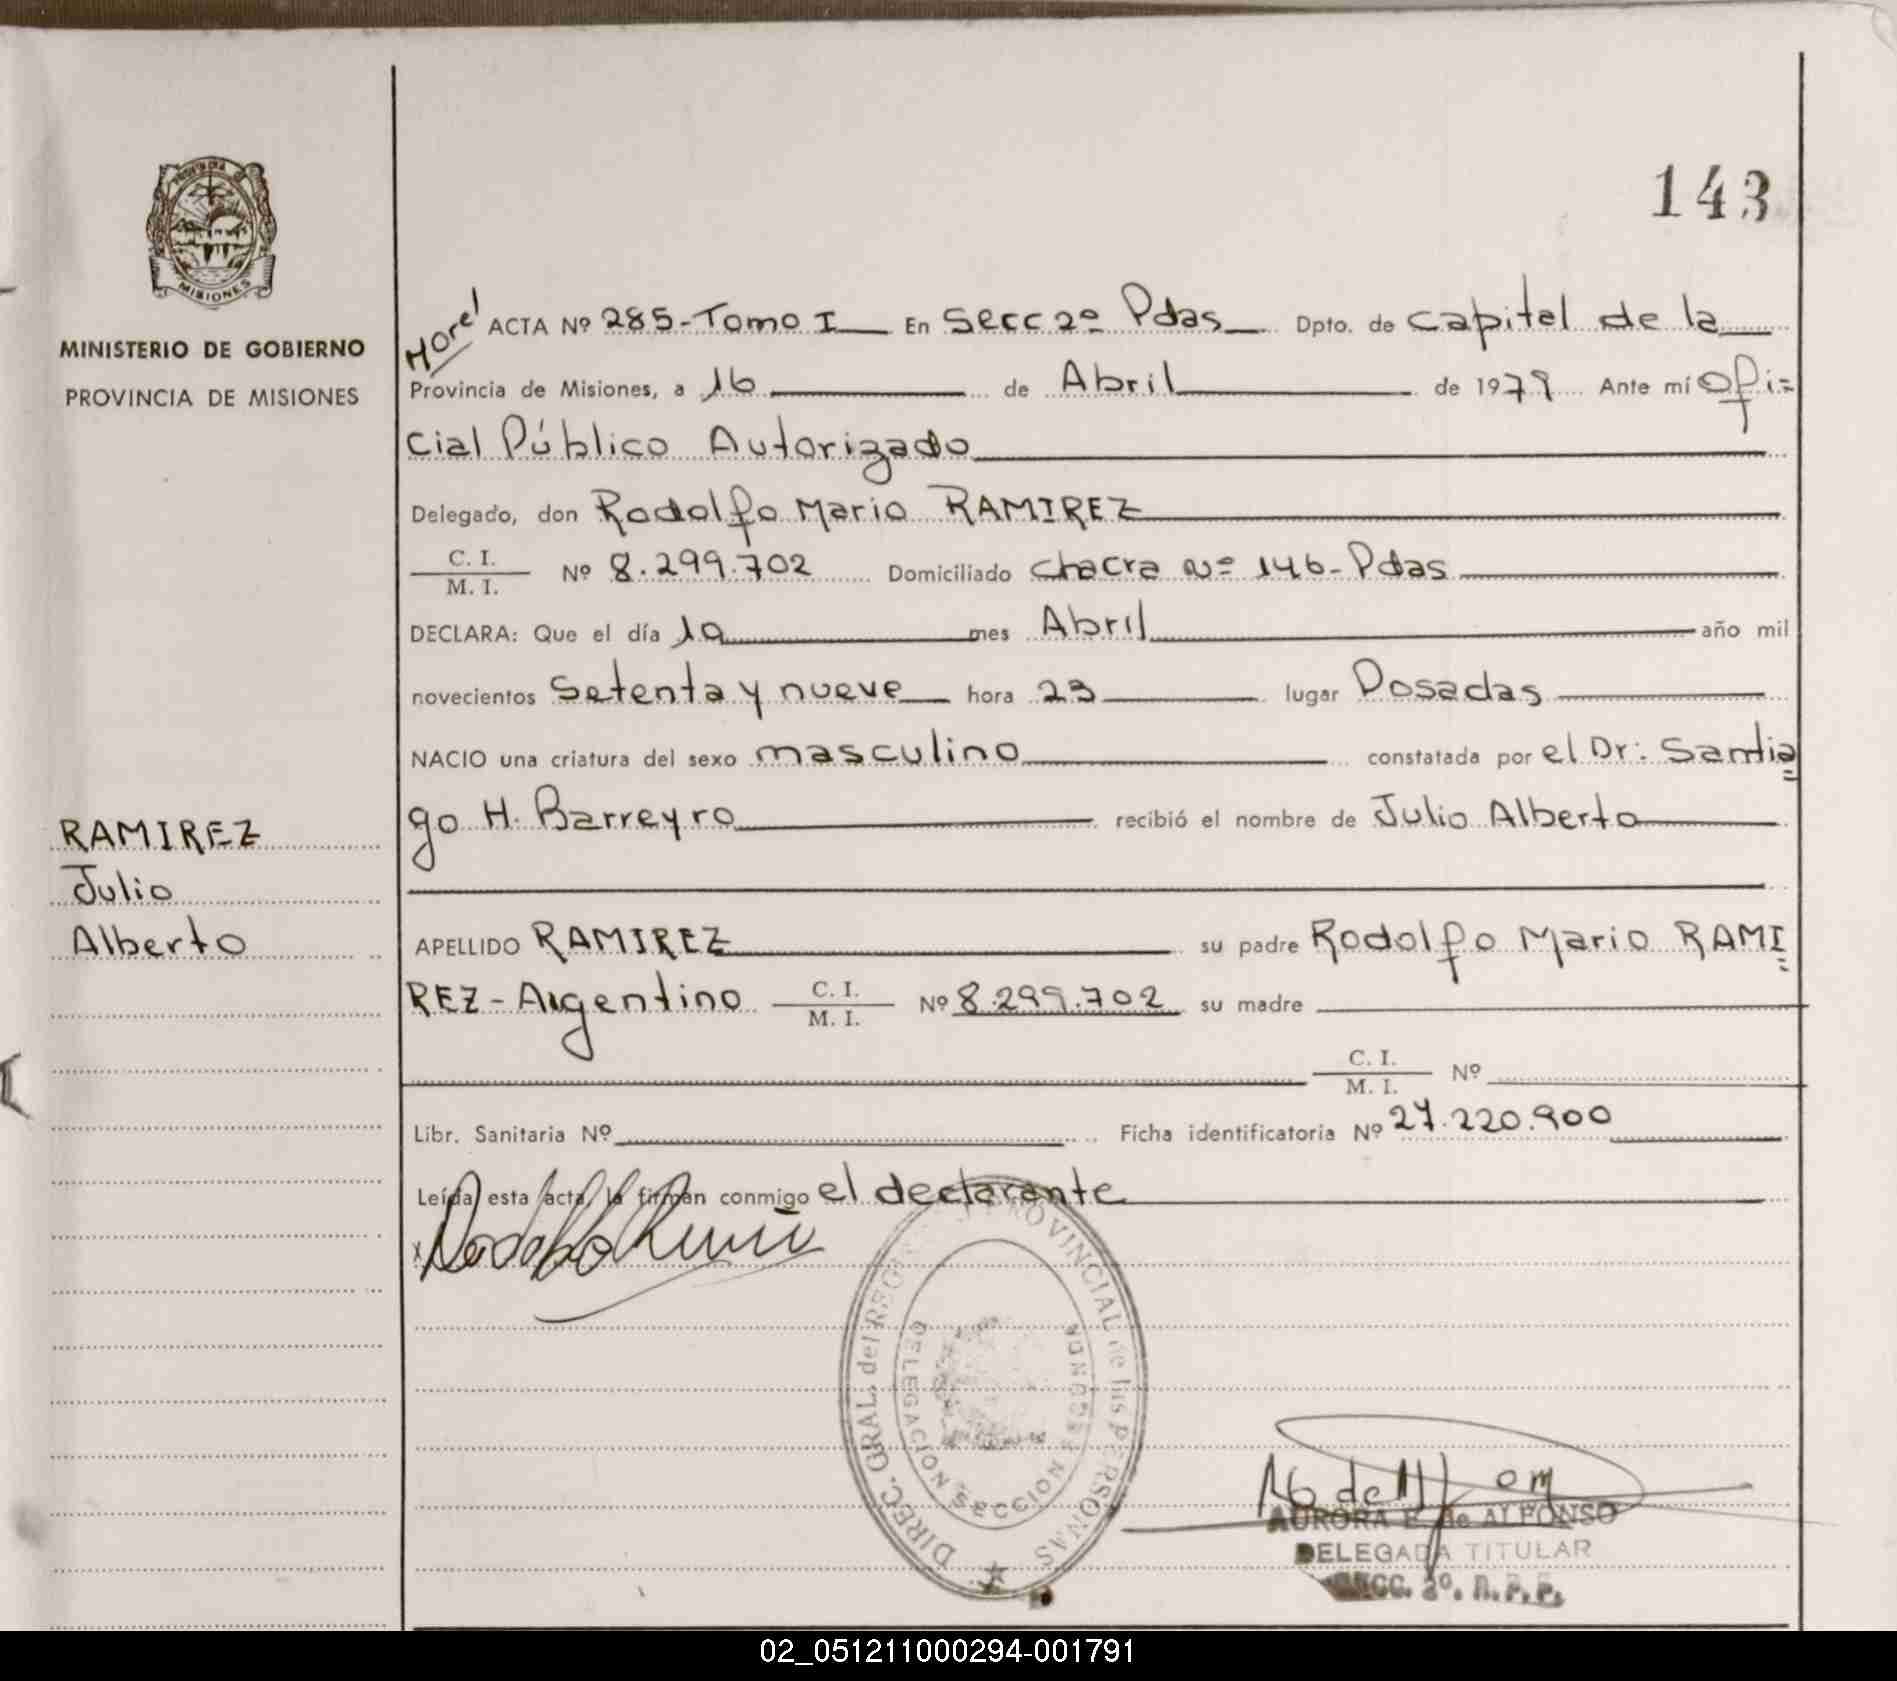 143
PROVINCIA
MISIONES
MINISTERIO DE GOBIERNO
PROVINCIA DE MISIONES
ACTA Nº 285-Tomo I En Secc 2º Pdas Dpto. de Capital de la
Provincia de Misiones, a 16 de Abril de 1979 Ante mí Ofi=
cial Público Autorizado
Delegado, don Rodolfo Mario RAMIREZ
C. I.
M. I. Nº 8.299.702 Domiciliado Chacra Nº 146-Pdas
DECLARA: Que el día mes Abril año mil
novecientos Setenta y nueve hora 23 lugar Posadas
NACIO una criatura del sexo masculino constatada por el Dr: Santia=
go H. Barreyro recibió el nombre de Julio Alberto
RAMIREZ
Julio
Alberto
APELLIDO RAMIREZ su padre Rodolfo Mario RAMI=
REZ-Argentino C. I. M. I. Nº 8.299.702 su madre
C. I.
M. I. Nº
Libr. Sanitaria Nº Ficha identificatoria Nº 27.220.900
Leída esta acta, la firman conmigo el declarante
DIREC. GRAL. del REG. PROVINCIAL de las PERSONAS
DELEGACION SECCION SEGUNDA
AURORA E. de ALFONSO
DELEGADA TITULAR
SECC. 2º. R.P.P.
02_051211000294-001791